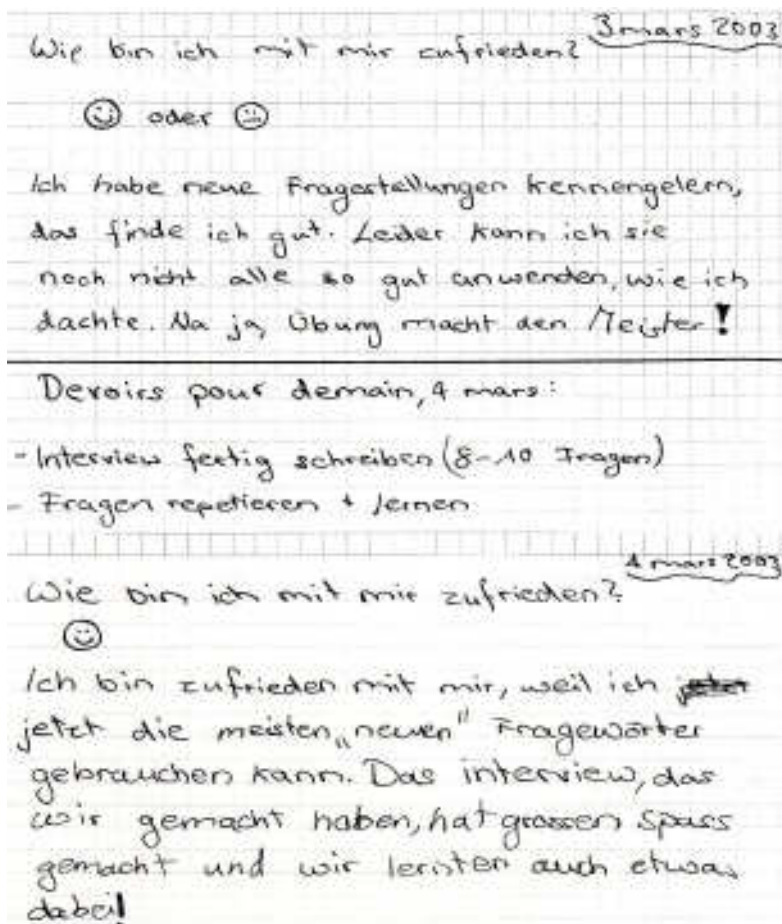 3 mars 2003
Wie bin ich mit mir zufrieden?
☺ oder 😐
Ich habe neue Fragestellungen kennengelern,
das finde ich gut. Leider kann ich sie
noch nicht alle so gut anwenden, wie ich
dachte. Na ja, Übung macht den Meister!
Devoirs pour demain, 4 mars:
- Interview fertig schreiben (8-10 Fragen)
- Fragen repetieren + lernen
4 mars 2003
Wie bin ich mit mir zufrieden?
☺
Ich bin zufrieden mit mir, weil ich
jetzt die meisten „neuen" Fragewörter
gebrauchen kann. Das interview, das
wir gemacht haben, hat grossen spass
gemacht und wir lernten auch etwas
dabei!